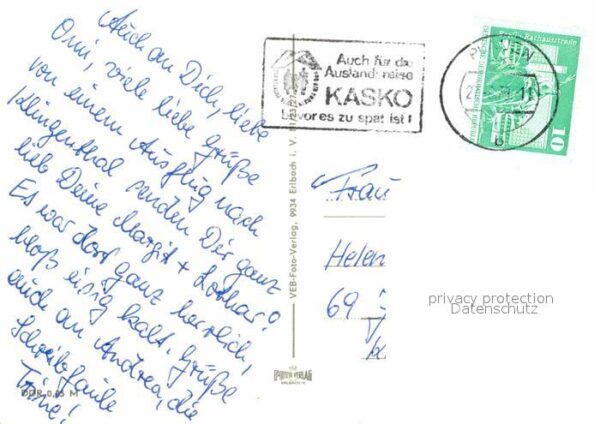 Auch an Dich, liebe
Omi, viele liebe Grüße
von einem Ausflug nach
Klingenthal senden Dir ganz
lieb Deine Margit + Lothar!
Es war dort ganz herrlich,
bloß eisig kalt. Grüße
auch an Andrea, die
Schreibfaule
Trine!
DDR 0,05 M
VEB-Foto-Verlag, 9934 Erlbach i. V.
FOTO VERLAG
ERLBACH
Auch für die
Auslandsreise
KASKO
bevor es zu spät ist!
Berlin, Rathausstraße
10
Frau
Helen
69
privacy protection
Datenschutz